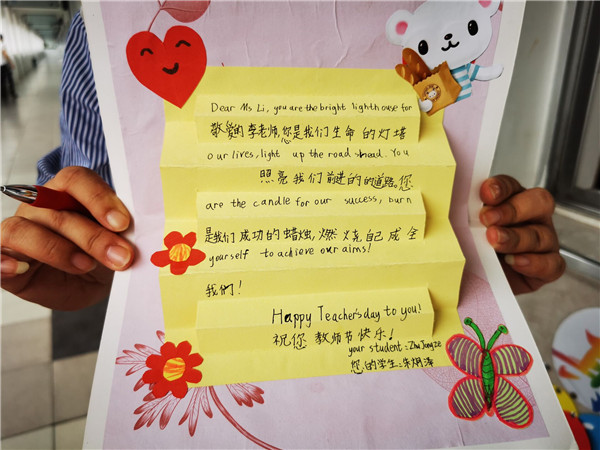 Dear Ms Li, you are the bright lighthouse for
敬爱的李老师,您是我们生命的灯塔
our lives, light up the road ahead. You
照亮我们前进的的道路。您
are the candle for our success, burn
是我们成功的蜡烛,燃烧自己成全
yourself to achieve our aims!
我们!
Happy Teacher's day to you!
祝您教师节快乐!
your student:
您的学生:朱